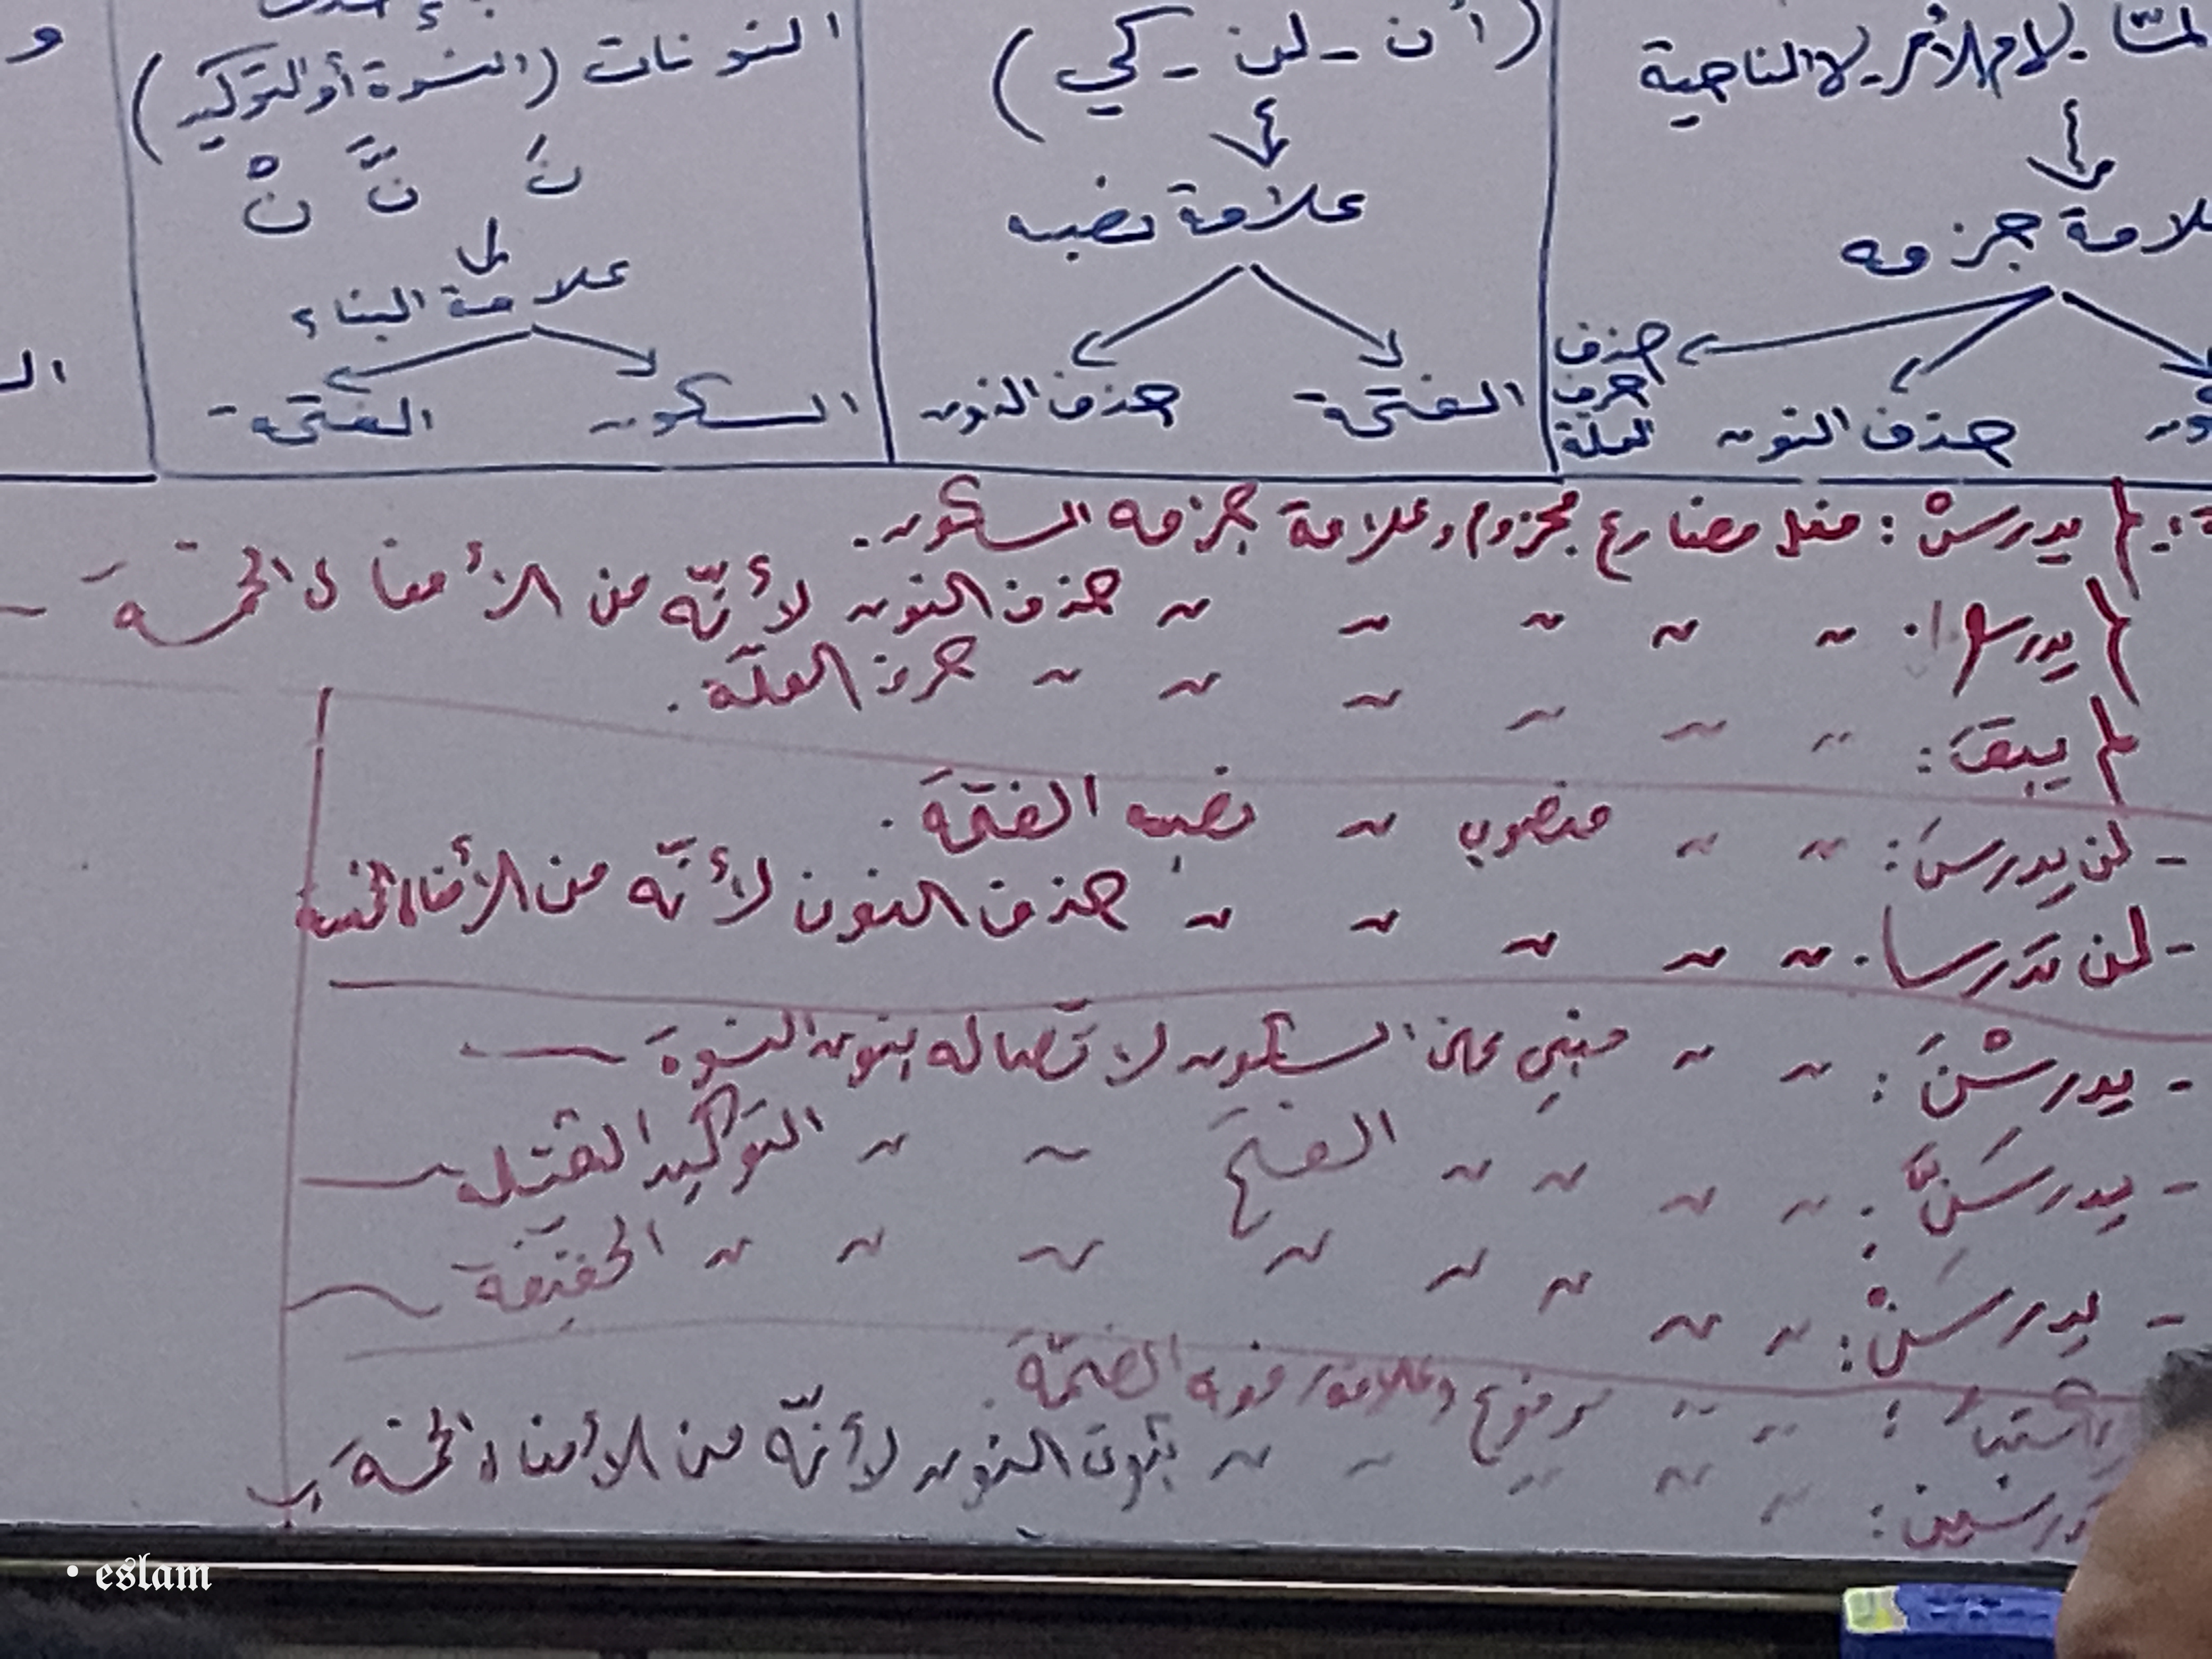 لمّا - لام الأمر - لا الناهية
علامة جزمه
حذف حرف العلة
حذف النون
(أن - لن - كي)
علامة نصبه
الفتحة
حذف النون
النونات (النسوة أو التوكيد)
نَ نَّ نْ
علامة البناء
السكون
الفتحة
يدرسْ : فعل مضارع مجزوم وعلامة جزمه السكون.
يدرسوا : ~ ~ ~ ~ ~ حذف النون لأنّه من الأفعال الخمسة
يبقَ : ~ ~ ~ ~ ~ ~ حرف العلّة.
- لن يدرسَ : ~ ~ منصوب ~ نصبه الفتحة.
- لن تدرسا : ~ ~ ~ ~ ~ حذف النون لأنّه من الأفعال الخمسة
- يدرسْنَ : ~ ~ مبني على السكون لاتصاله بنون النسوة
- يدرسَنَّ : ~ ~ ~ ~ الفتح ~ ~ التوكيد الثقيلة
- يدرسَنْ : ~ ~ ~ ~ ~ ~ ~ ~ الخفيفة
: ~ ~ مرفوع وعلامة رفعه الضمّة.
: ~ ~ ~ ~ ~ ثبوت النون لأنّه من الأفعال الخمسة
• eslam